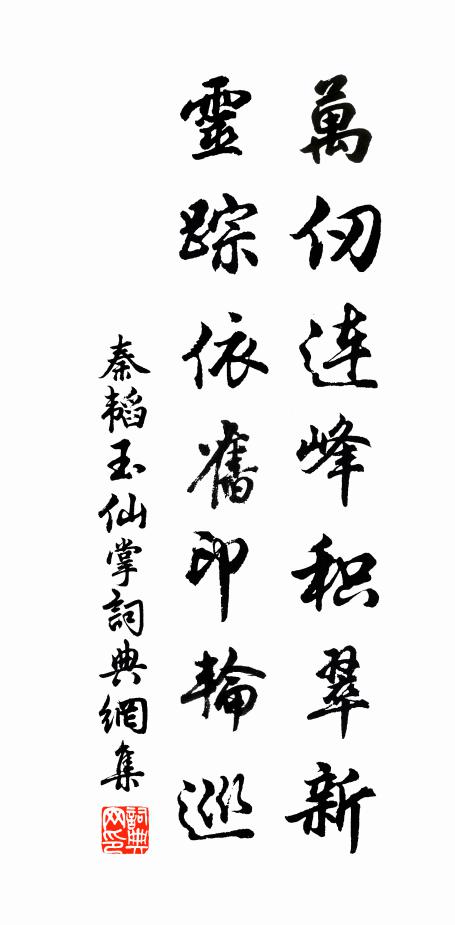 萬仞連峰积翠新
靈踪依舊印輪巡
秦韜玉仙掌詞典網集
詞典網印